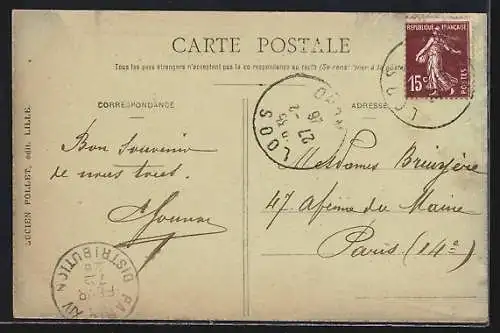 CARTE POSTALE
Tous les pays étrangers n'acceptent pas la correspondance au recto (Se renseigner à la poste)
CORRESPONDANCE
ADRESSE
RÉPUBLIQUE FRANÇAISE
15c
POSTES
LOOS
LOOS NORD
27
26
Bon Souvenir
de nous tous.
Mesdames Bruyère
47 Avenue du Maine
Paris (14e)
LUCIEN POLLET, édit. LILLE.
PARIS XIV
DISTRIBUTION